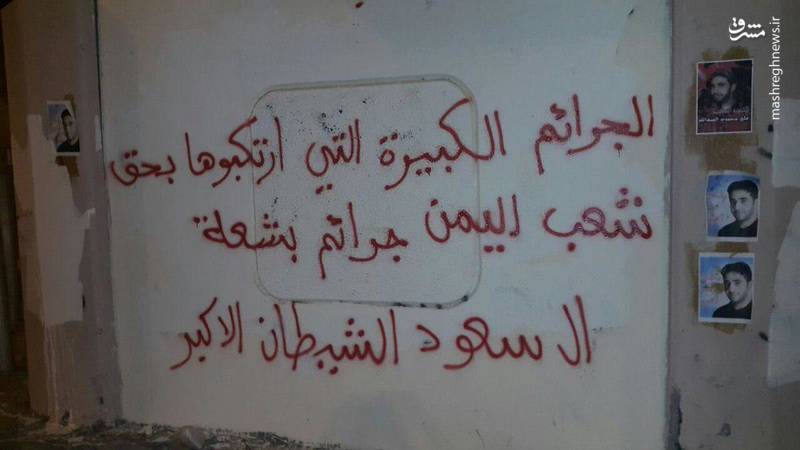 الجرائم الكبيرة التي ارتكبوها بحق
شعب اليمن جرائم بشعة
ال سعود الشيطان الاكبر
مشرق
mashreghnews.ir